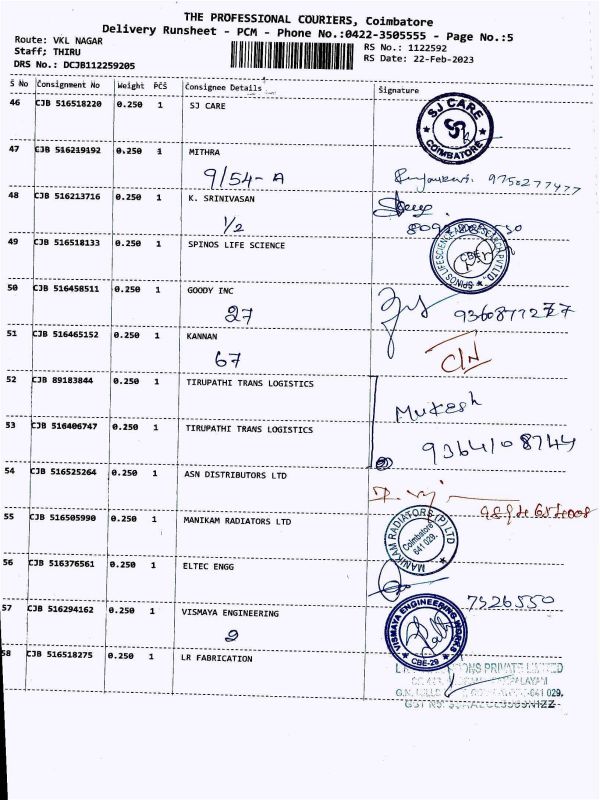 THE PROFESSIONAL COURIERS, Coimbatore
Delivery Runsheet - PCM - Phone No.:0422-3505555 - Page No.:5
Route: VKL NAGAR
RS No.: 1122592
Staff; THIRU
RS Date: 22-Feb-2023
DRS No.: DCJB112259205
S No Consignment No Weight PCS Consignee Details Signature
46 CJB 516518220 0.250 1 SJ CARE
SJ CARE
COIMBATORE
47 CJB 516219192 0.250 1 MITHRA
9/54-A
9750277477
48 CJB 516213716 0.250 1 K. SRINIVASAN
1/2
49 CJB 516518133 0.250 1 SPINOS LIFE SCIENCE
SPINOS LIFE SCIENCE AND RESEARCH PVT LTD.
CBE
50 CJB 516458511 0.250 1 GOODY INC
27
9360877277
51 CJB 516465152 0.250 1 KANNAN
67
C/N
52 CJB 89183844 0.250 1 TIRUPATHI TRANS LOGISTICS
Mukesh
53 CJB 516406747 0.250 1 TIRUPATHI TRANS LOGISTICS
9364108744
54 CJB 516525264 0.250 1 ASN DISTRIBUTORS LTD
55 CJB 516505990 0.250 1 MANIKAM RADIATORS LTD
MANIKAM RADIATORS (P) LTD
Coimbatore
641 029.
56 CJB 516376561 0.250 1 ELTEC ENGG
7526550
57 CJB 516294162 0.250 1 VISMAYA ENGINEERING
2
VISMAYA ENGINEERING WORKS
CBE-29
58 CJB 516518275 0.250 1 LR FABRICATION
PRIVATE LIMITED
G.N. MILLS -641 029.